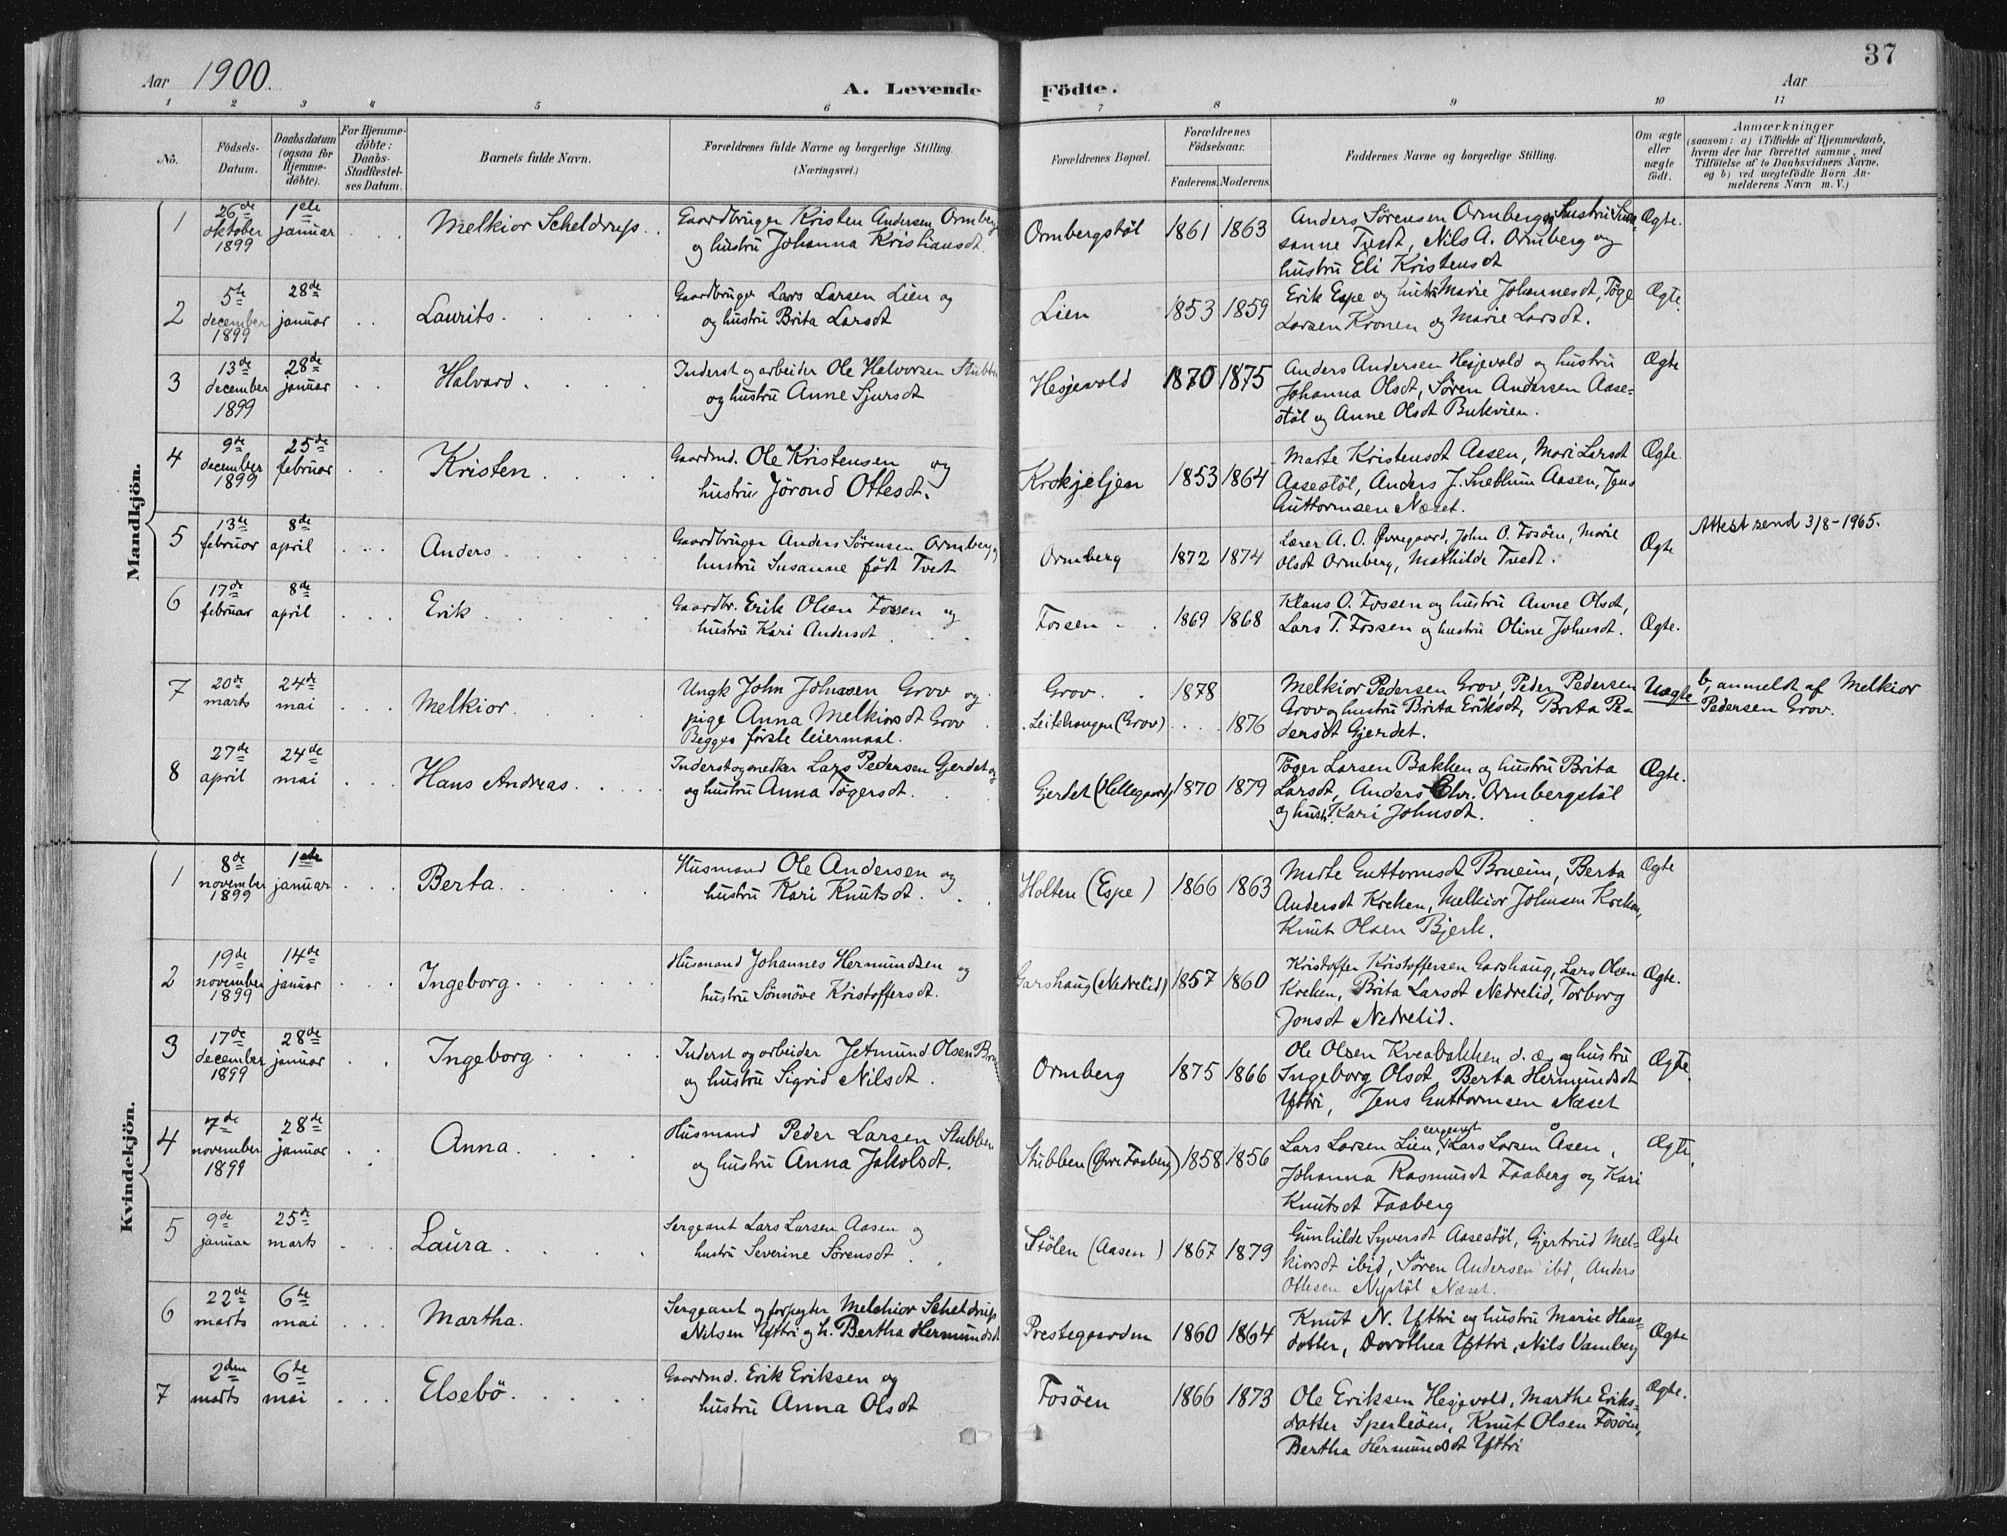 37
Aar 1900.
A. Levende Födte.
Aar
1 2 3 4 5 6 7 8 9 10 11
No.
Födsels-Datum.
Daabsdatum (ogsaa for Hjemme-döbte).
For Hjemme-döbte: Daabs-Stadfæstel-ses Datum.
Barnets fulde Navn.
Forældrenes fulde Navne og borgerlige Stilling. (Næringsvei.)
Forældrenes Bopæl.
Forældrenes Födselsaar.
Faderens. Moderens.
Faddernes Navne og borgerlige Stilling.
Om ægte eller uægte födt.
Anmærkninger
(saasom: a) i Tilfælde af Hjemmedaab, hvem der har forrettet samme, med Tilföielse af to Daabsvidners Navne, og b) ved uægtefödte Börn An-melderens Navn m. V.)
Mandkjön.
1 26de oktober 1899 1ste januar Melkior Scheldrup. Gaardbruger Kristen Andersen Ormberg
og hustru Johanna Kristiansdt. Ormbergstöl 1861 1863 Anders Sörensen Ormberg og Hustru Su-
sanne Tvedt, Nils A. Ormberg og
hustru Eli Kristensdt Ægte.
2 5te december 1899 28de januar Laurits. Gaardbruger Lars Larsen Lien og
og hustru Brita Larsdt Lien 1853 1859 Erik Espe og hustru Marie Johannesdt, Töge
Larsen Kronen og Marie Larsdt. Ægte.
3 13de december 1899 28de januar Halvard. Inderst og arbeider Ole Halvorsen Stubben
og hustru Anne Sjursdt Hesjevold 1870 1875 Anders Andersen Hesjevold og hustru
Johanna Olsdt, Sören Andersen Aase-
stöl og Anne Olsdt Bukvien. Ægte
4 9de december 1899 25de februar Kristen Gaardmd. Ole Kristensen og
hustru Jörond Ottesdt. Krokjeljen 1853 1864 Marte Kristensdt Aasen, Mari Larsdt
Aasestöl, Anders J. Sneblum Aasen, Jens
Guttormsen Næset. Ægte.
5 13de februar 8de april Anders. Gaardbruger Anders Sörensen Ormberg og
hustru Susanne födt Tvedt Ormberg 1872 1874 Lærer A. O. Övregaard, John O. Fosöen, Marie
Olsdt Ormberg, Mathilde Tvedt. Ægte Attest send 3/8-1965.
6 17de februar 8de april Erik. Gaardbr. Erik Olsen Fossen og
hustru Kari Andersdt. Fossen 1869 1868 Klaus O. Fossen og hustru Anne Olsdt,
Lars T. Fossen og hustru Oline Johnsdt. Ægte.
7 20de marts 24de mai Melkior. Ungk John Johnsen Grov og
pige Anna Melkiorsdt Grov
Begges förste leiermaal. Grov. 1878
Leitehaugen (Grov) 1876 Melkior Pedersen Grov, Peder Pedersen
Grov og hustru Brita Eriksdt, Brita Pe-
dersdt Gjerdet. Uægte b, anmeldt af Melkior
Pedersen Grov.
8 27de april 24de mai Hans Andreas. Inderst og snedker Lars Pedersen Gjerdet og
og hustru Anna Tögersdt. Gjerdet (Hellegaard) 1870 1879 Töger Larsen Bakken og hustru Brita
Larsdt, Anders Chr. Ormbergstöl
og hustr. Kari Johnsdt. Ægte.
Kvindekjön.
1 8de november 1899 1ste januar Berta. Husmand Ole Andersen og
hustru Kari Knutsdt. Holten (Espe) 1866 1863 Marte Guttormsdt Brueim, Berta
Andersdt Kreken, Melkior Johnsen Kreken,
Knut Olsen Bjerk. Ægte
2 19de november 1899 14de januar Ingeborg. Husmand Johannes Hermundsen og
hustru Sönnöve Kristoffersdt. Garshaug (Nedrelid) 1857 1860 Kristoffer Kristoffersen Garshaug, Lars Olsen
Kreken, Brita Larsdt Nedrelid, Torborg
Jonsdt Nedrelid. Ægte.
3 17de december 1899 28de januar Ingeborg. Inderst og arbeider Jetmund Olsen
og hustru Sigrid Nilsdt. Ormberg 1875 1866 Ole Olsen Kveabakken d. æ. og hustru
Ingeborg Olsdt Berta Hermundsdt
Yttri, Jens Guttormsen Næset Ægte.
4 7de november 1899 28de januar Anna. Husmand Peder Larsen Stubben
og hustru Anna Jakobsdt. Stubben (Övre Faaberg) 1858 1856 Lars Larsen Lien, sergeant Lars Larsen Åsen,
Johanna Rasmusdt Faaberg og Kari
Knutsdt Faaberg Ægte.
5 9de januar 25de marts Laura. Sergeant Lars Larsen Aasen og
hustru Severine Sörensdt. Stölen (Aasen) 1867 1879 Gunhilde Syversdt Aasestöl, Gjertrud Mel-
kiorsdt ibid, Sören Andersen ibd, Anders
Ottesen Nystöl Næset. Ægte
6 22de marts 6te mai Martha. Sergeant og forpagter Melchior Scheldrup
Nilsen Yttri og h. Bertha Hermundsdt Prestegaarden 1860 1864 Knut N. Yttri og hustru Marie Hans-
dotter, Dorothea Yttri, Nils Vamberg Ægte
7 2den marts 6te mai Elsebö. Gaardmd. Erik Eriksen og
hustru Anna Olsdt Fosöen 1866 1873 Ole Eriksen Hesjevold, Marthe Eriks-
dotter Sperleöen, Knut Olsen Fosöen,
Bertha Hermundsdt Yttri Ægte.